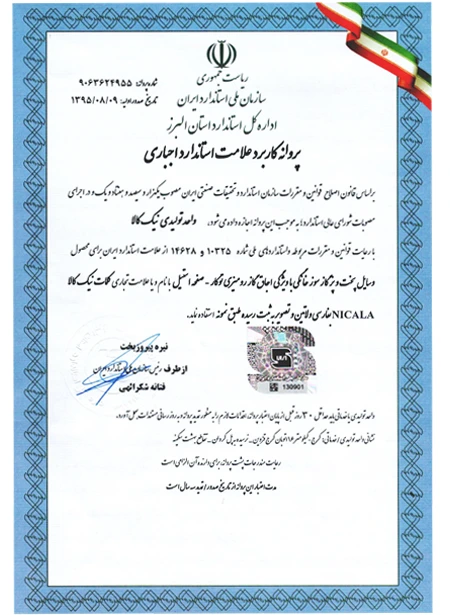 ریاست جمهوری
سازمان ملی استاندارد ایران
اداره کل استاندارد استان البرز
شماره پروانه: ۹۰۶۳۶۲۴۹۵۵
تاریخ صدور اولیه: ۱۳۹۵/۰۸/۰۹
پروانه کاربرد علامت استاندارد اجباری
براساس قانون اصلاح قوانین و مقررات سازمان استاندارد و تحقیقات صنعتی ایران مصوب یکهزار و سیصد و هفتاد و یک و در اجرای
مصوبات شورای عالی استاندارد؛ به موجب این پروانه اجازه داده می شود، واحد تولیدی نیک کالا
با رعایت قوانین و مقررات مربوطه و استانداردهای ملی شماره ۱۰۳۲۵ و ۱۴۶۲۸ از علامت استاندارد ایران برای محصول
وسایل پخت و پز گاز سوز خانگی با ویژگی اجاق گاز رومیزی توکار - صفحه استیل با نام و یا علامت تجاری کلمات نیک کالا
NICALA بفارسی و لاتین و تصویر به ثبت رسیده طبق نمونه استفاده نماید.
نیره پیروزبخت
رئیس سازمان ملی استاندارد ایران
از طرف
فتانه شکرالهی
130901
واحد تولیدی یا خدماتی باید حداقل ۳۰ روز قبل از پایان اعتبار پروانه، اقدامات لازم را به منظور تمدید پروانه و به روز رسانی مستندات به عمل آورد.
نشانی واحد تولیدی / خدماتی: کرج - کیلومتر ۱۶ اتوبان کرج قزوین - نرسیده به پل کردان - تقاطع بهشت سکینه
رعایت مندرجات پشت پروانه، برای دارنده آن الزامی است
مدت اعتبار این پروانه از تاریخ صدور / تمدید سه سال است